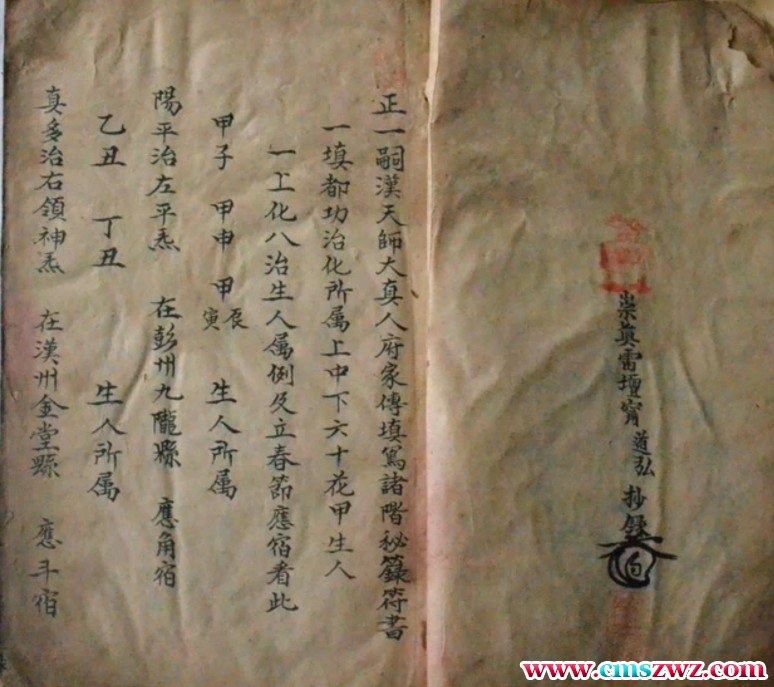 崇真雷壇甯道弘抄錄
正一嗣漢天師大真人府家傳填寫諸階秘籙符書
一填都功治化所属上中下六十花甲生人
一上化八治生人属例及立春節應宿看此
甲子 甲申 甲寅辰 生人所属
陽平治左平炁 在彭州九隴縣 應角宿
乙丑 丁丑 生人所属
真多治右領神炁 在漢州金堂縣 應斗宿
www.cmszwz.com